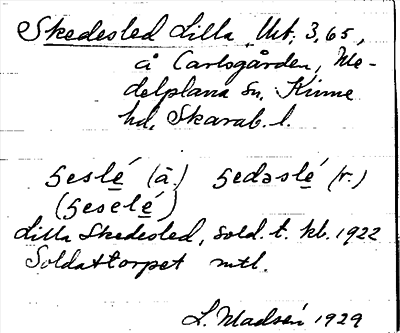 Skedesled Lilla, Urt. 3,65,
å Carlsgården, Me-
delplana sn, Kinne
hd, Skarab. l.
ʒeslé (ä.) ʒedəslé (r.)
(ʒeselé)
Lilla Skedesled, sold. t. kb. 1922
Soldattorpet mtl.
L. Madsén 1929